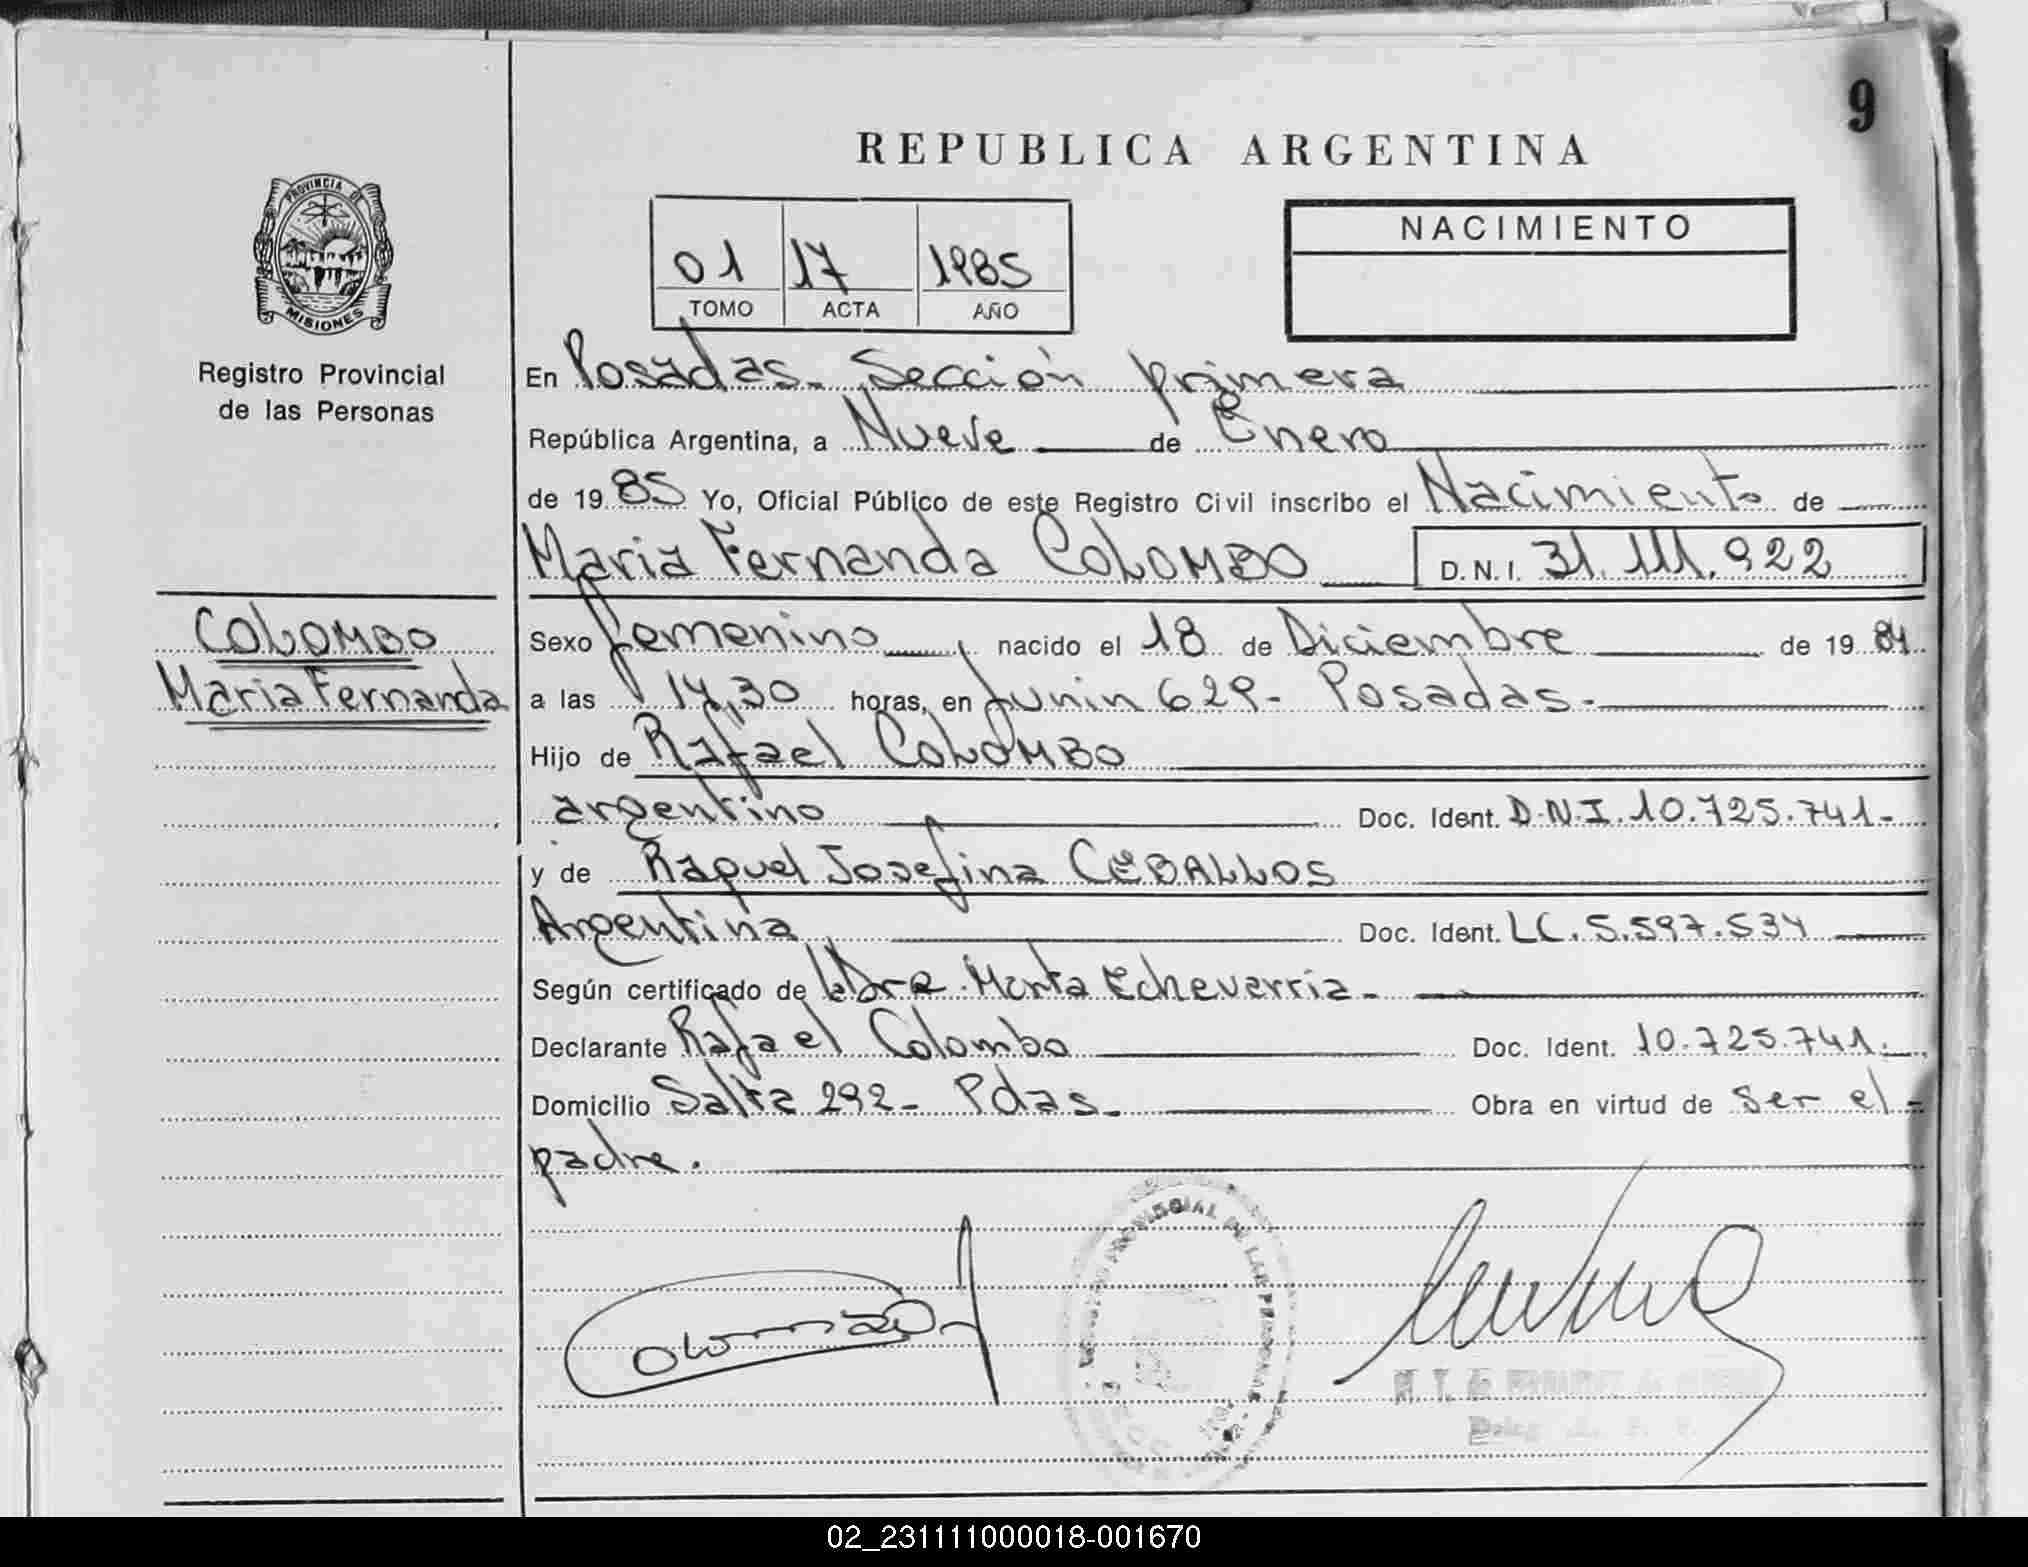 9
REPUBLICA ARGENTINA
PROVINCIA DE
MISIONES
Registro Provincial
de las Personas
01 17 1985
TOMO ACTA AÑO
NACIMIENTO
En Posadas. Sección primera
República Argentina, a Nueve de Enero
de 1985 Yo, Oficial Público de este Registro Civil inscribo el Nacimiento de
Maria Fernanda COLOMBO D.N.I. 31.111.922
COLOMBO
Maria Fernanda
Sexo femenino, nacido el 18 de Diciembre de 1984
a las 14,30 horas, en Junin 629- Posadas.-
Hijo de Rafael COLOMBO
argentino Doc. Ident. D.N.I. 10.725.741-
y de Raquel Josefina CEBALLOS
Argentina Doc. Ident. LC. 5.597.534
Según certificado de la Dra. Echeverria-
Declarante Rafael Colombo Doc. Ident. 10.725.741.
Domicilio Salta 292- Pdas.- Obra en virtud de ser el-
padre.
PROVINCIAL DE LAS PERSONAS
02_231111000018-001670